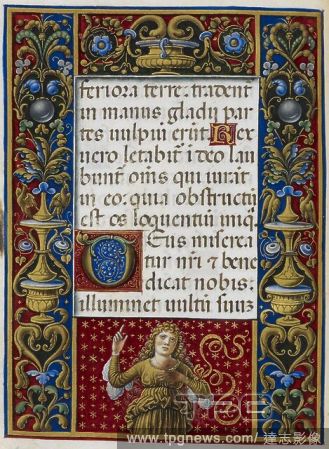 feriora terre: tradent
in manus gladii par
tes uulpiũ erũt Rex
uero letabit̃ ĩ deo lau
bunt̃ om̃s qui iurãt
in eo: quia obstructũ
est os loquentiũ iniq̃.
DEus miserea
tur nr̃i ⁊ bene
dicat nobis:
illuminet uultũ suũ
TPG
www.tpgnews.com/達志影像